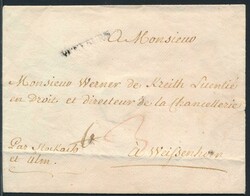 A Monsieur
Monsieur Werner de Kreith Licentié
en Droits et directeur de la Chancellerie
Par Stockach
et Ulm.
à Weissenhorn